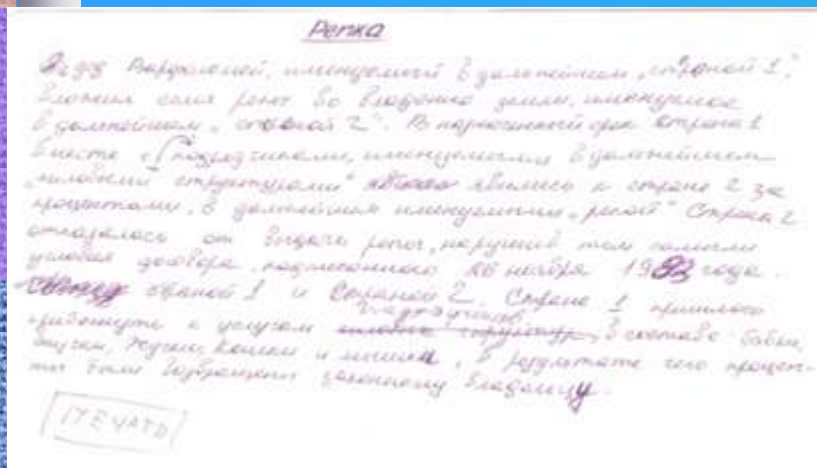 Репка
Дед , именуемый в дальнейшем „стороной 1",
вложил семя репы во владение земли, именуемое
в дальнейшем „стороной 2". В назначенный срок страна 1
вместе с подрядчиками, именуемыми в дальнейшем
„силовыми структурами" явились к стране 2 за
процентами, в дальнейшем именуемыми „репой" Страна 2
отказалась от выдачи репы, нарушив тем самым
условия договора, подписанного 26 ноября 1992 года.
между страной 1 и Страной 2. Стране 1 пришлось
прибегнуть к услугам подрядчиков в составе бабки,
внучки, Жучки, кошки и мышки, в результате чего процен-
ты были возвращены законному владельцу.
ПЕЧАТЬ